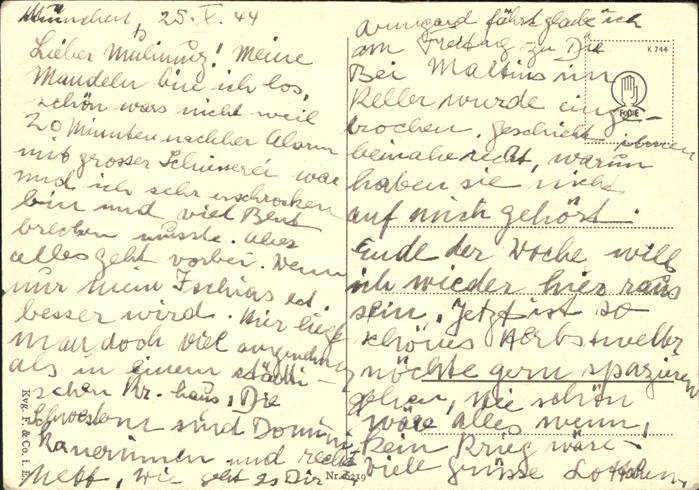 München, 25. X. 44
Lieber Mulinuz! Meine
Mandeln bin ich los,
schön wars nicht weil
20 Minuten nachher Alarm
mit grosser Schiesserei war
und ich sehr erschrocken
bin und viel Blut
brechen musste. Aber
alles geht vorbei. Wenn
nur mein Ischias bd.
besser wird. Hier liegt
man doch viel angenehmer
als in einem städti-
schen Kr. haus, Die
Schwestern sind Domini-
kanerinnen und recht
nett, wie geht es Dir
Armgard fährt glaube ich
am Freitag zu Dir
Bei Maltins im
Keller wurde einge-
brochen. Geschieht ihnen
beinahe recht, warum
haben sie nicht
auf mich gehört.
Ende der Woche will
ich wieder hier raus
sein, Jetzt ist so
schönes Herbstwetter
möchte gern spazieren
gehen, wie schön
wäre alles wenn,
kein Krieg wäre-
Viele Grüsse
K 744
FOCKE
Kvg. F. & Co. i. B.
Nr. 6219